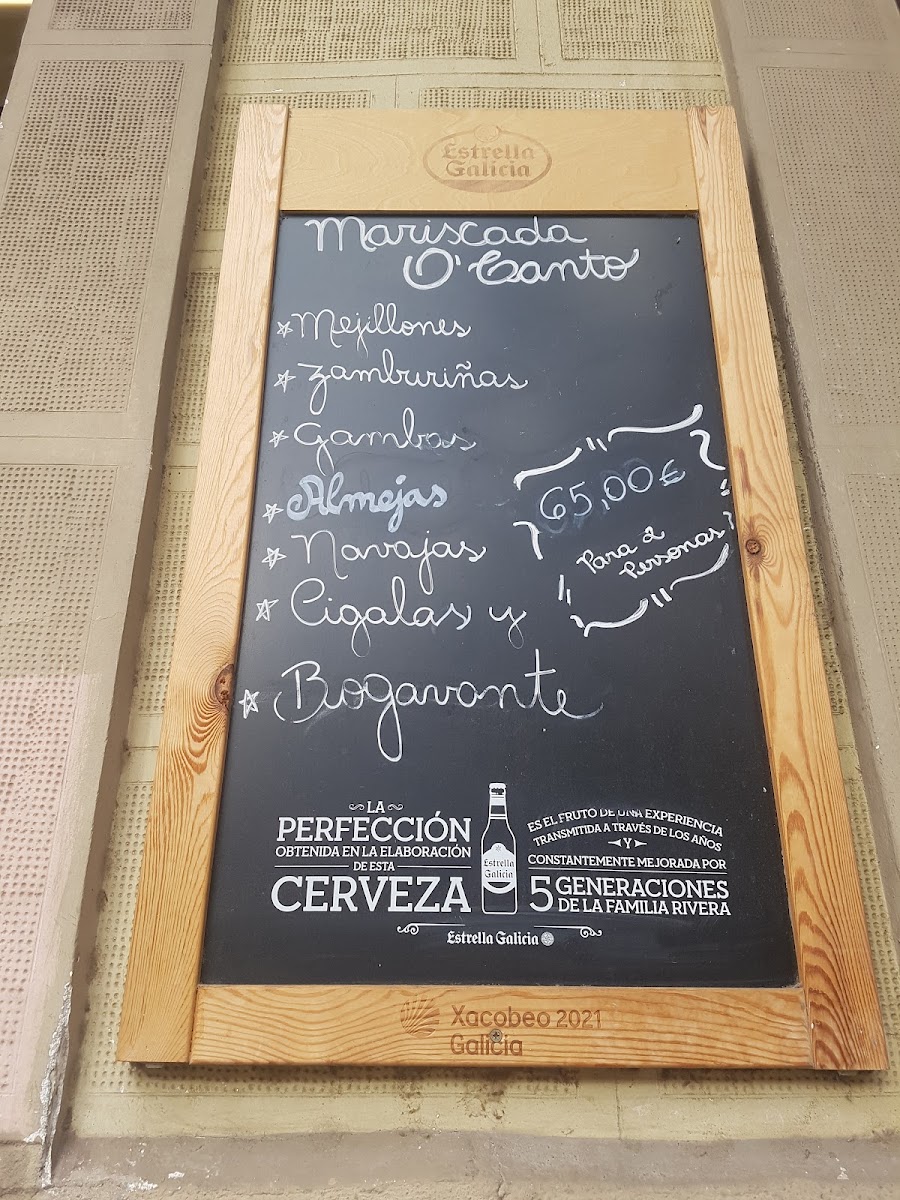 Estrella
Galicia
Mariscada
O'Canto
Mejillones
Zamburiñas
Gambas
Almejas
Navajas
Cigalas y
Bogavante
65,00€
Para 2
Personas
LA
PERFECCIÓN
OBTENIDA EN LA ELABORACIÓN
DE ESTA
CERVEZA
Estrella
Galicia
ES EL FRUTO DE UNA EXPERIENCIA
TRANSMITIDA A TRAVÉS DE LOS AÑOS
Y
CONSTANTEMENTE MEJORADA POR
5 GENERACIONES
DE LA FAMILIA RIVERA
Estrella Galicia
Xacobeo 2021
Galicia